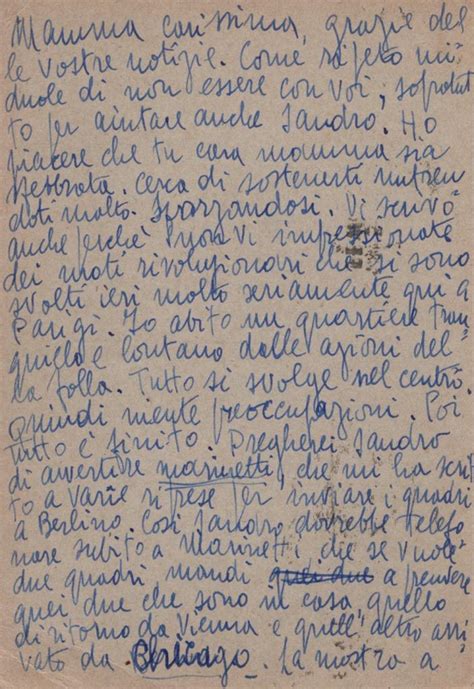 Mamma carissima, grazie del
le vostre notizie. Come ripeto mi
duole di non essere con voi, sopratut
to per aiutare anche Sandro. Ho
piacere che tu cara mamma sia
sfebbrata. Cerca di sostenerti nutren
doti molto. Sforzandosi. Vi scrivo
anche perchè non vi impressionate
dei moti rivoluzionari che si sono
svolti ieri molto seriamente qui a
Parigi. Io abito un quartiere tran
quillo e lontano dalle azioni del-
la folla. Tutto si svolge nel centro
quindi niente preoccupazioni. Poi
tutto è finito. Pregherei Sandro
di avvertire Marinetti, che mi ha scrit
to a varie riprese per inviare i quadri
a Berlino. Così Sandro dovrebbe telefo
nare subito a Marinetti, che se vuole
due quadri, mandi quei due a prendere
quei due che sono in casa, quello
di ritorno da Vienna e quell'altro arri
vato da . La mostra a